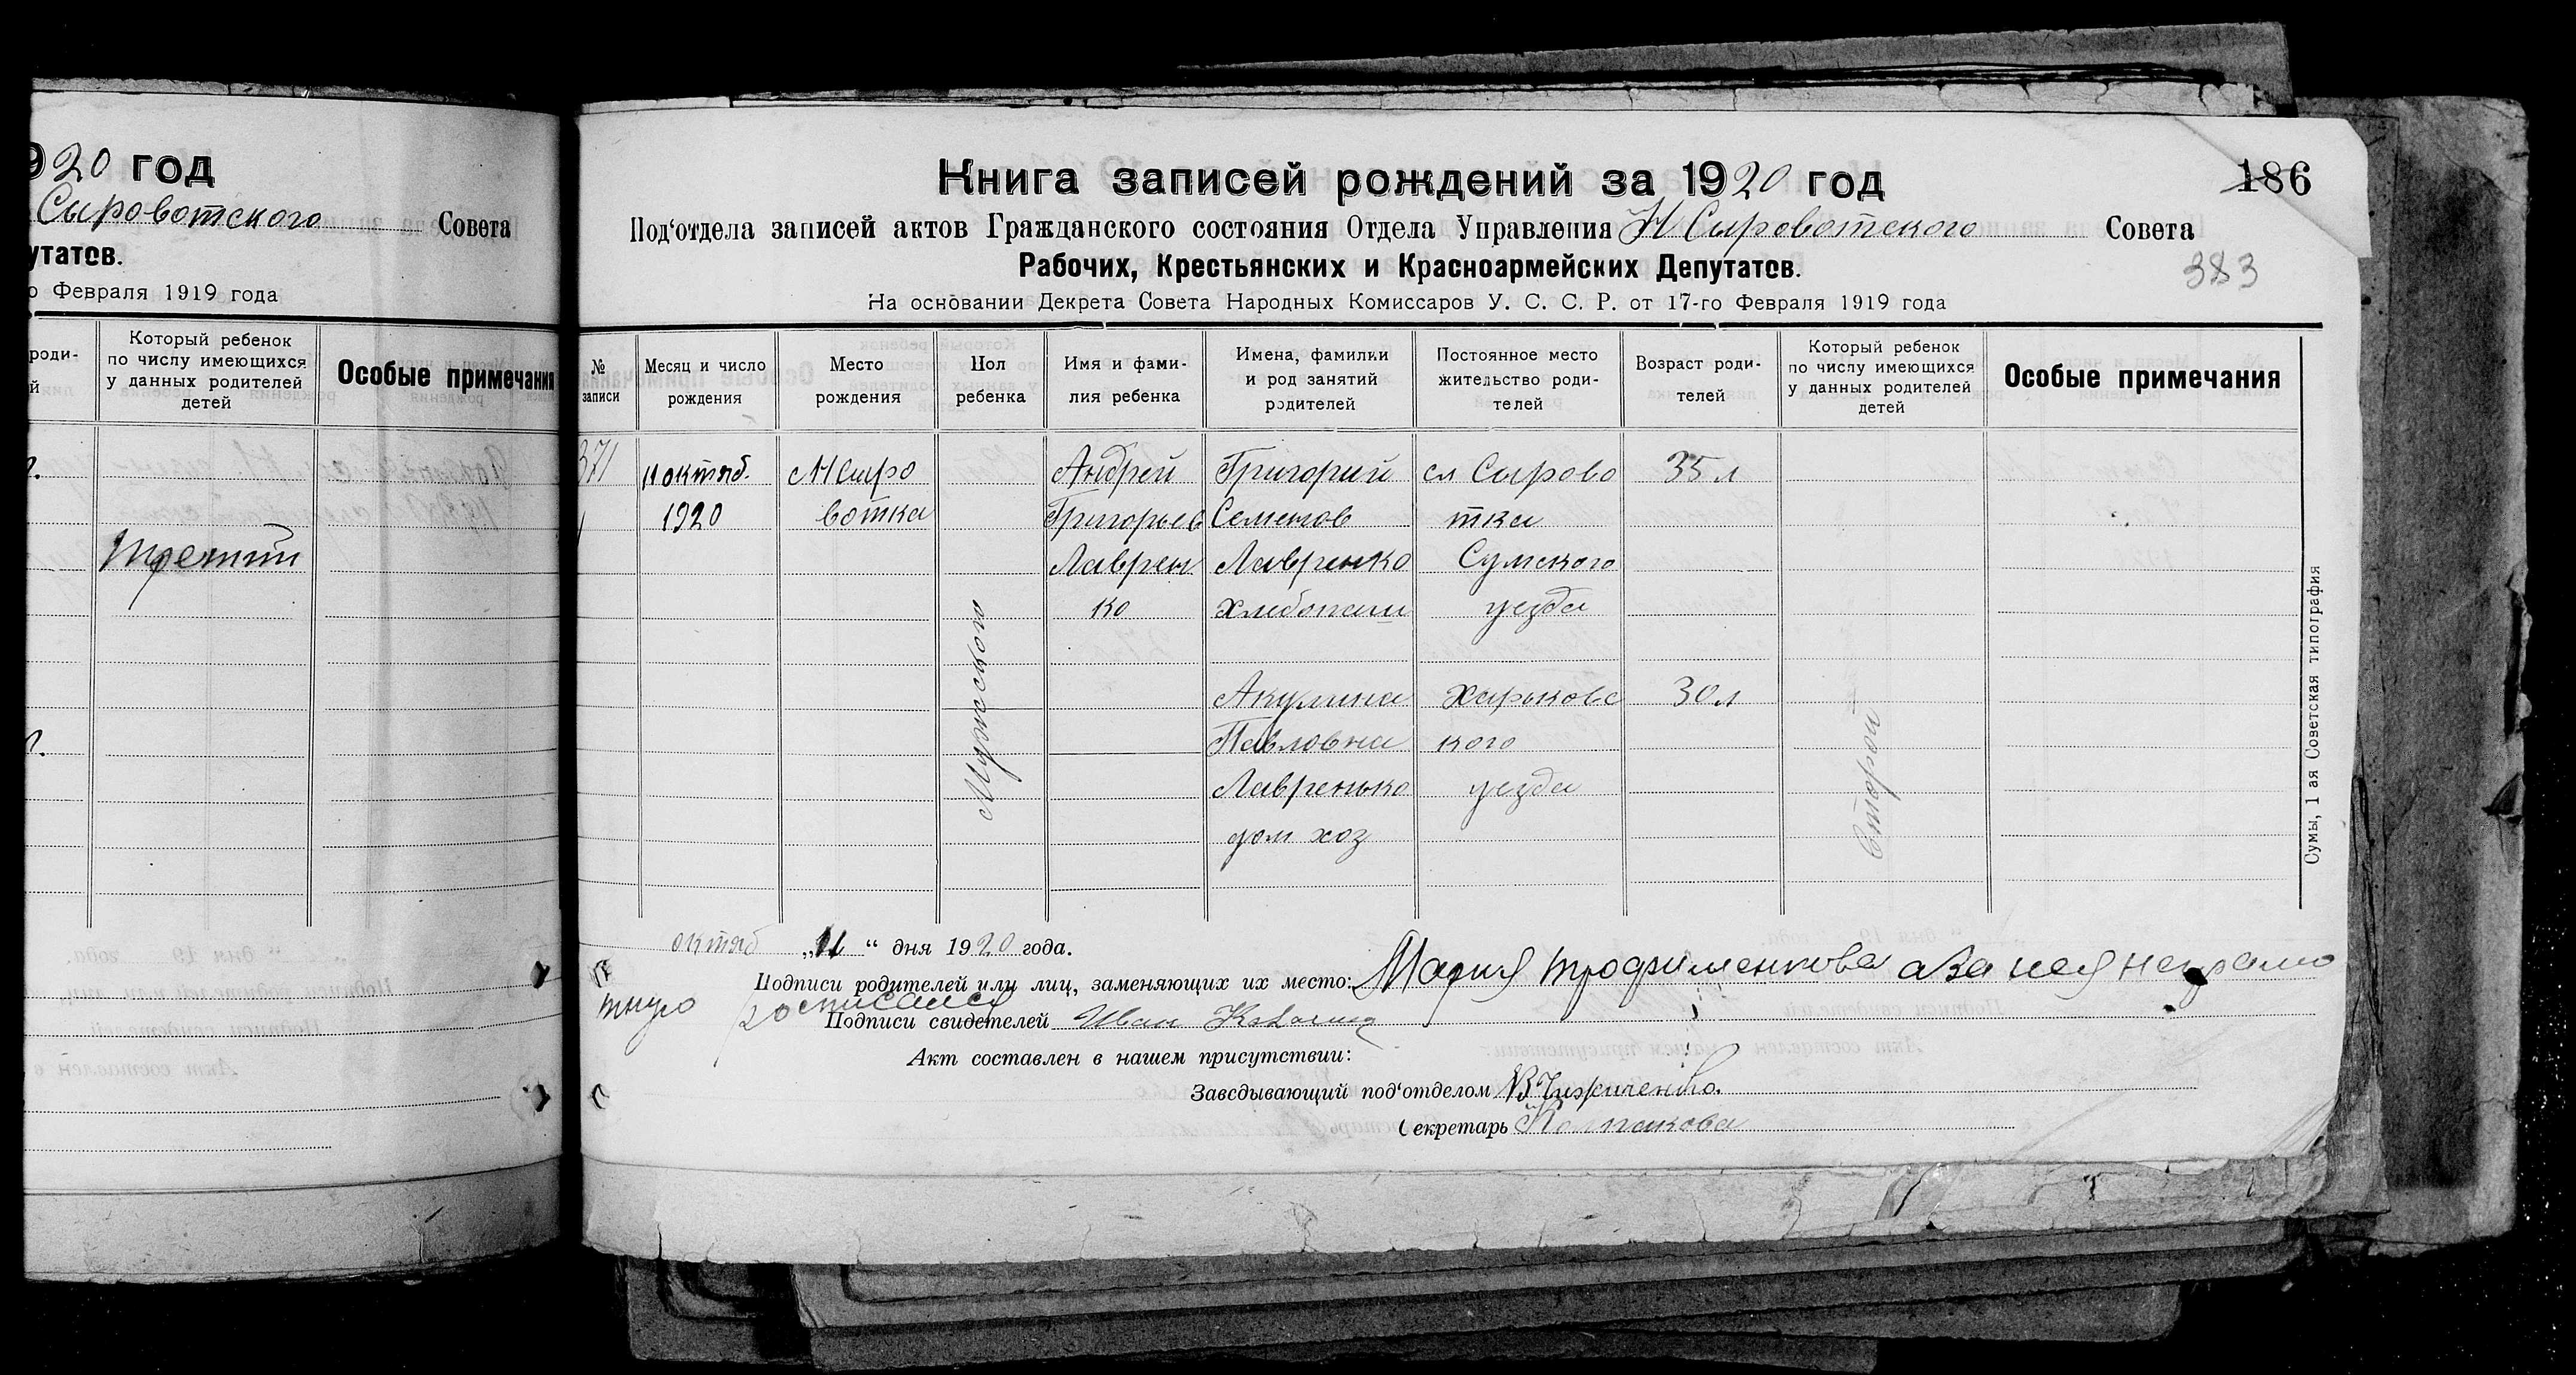 920 год
Сыровотского Совета
утатов.
о Февраля 1919 года
роди-
й
Который ребенок
по числу имеющихся
у данных родителей
детей
Особые примечания
третий
186
Книга записей рождений за 1920 год
Под‘отдела записей актов Гражданского состояния Отдела Управления Н Сыровотского Совета
Рабочих, Крестьянских и Красноармейских Депутатов.
383
На основании Декрета Совета Народных Комиссаров У. С. С. Р. от 17-го Февраля 1919 года
№
записи
Месяц и число
рождения
Место
рождения
Пол
ребенка
Имя и фами-
лия ребенка
Имена, фамилии
и род занятий
родителей
Постоянное место
жительство роди-
телей
Возраст роди-
телей
Который ребенок
по числу имеющихся
у данных родителей
детей
Особые примечания
371
11 октяб.
1920
Н Сыро
вотка
Мужского
Андрей
Григорьев
Лаврен
ко
Григорий
Семенов
Лавренко
хлебопаш
Акулина
Павловна
Лавренько
дом хоз
сл Сырово
тка
Сумского
уезда
Харьковс
кого
уезда
35 л
30 л
Второй
Сумы, 1 ая Советская типография
октяб „11“ дня 1920 года.
Подписи родителей или лиц, заменяющих их место: Мария Трофименкова а За нея неграмо
тную росписался
Подписи свидетелей Иван
Акт составлен в нашем присутствии:
Заведывающий под‘отделом
Секретарь